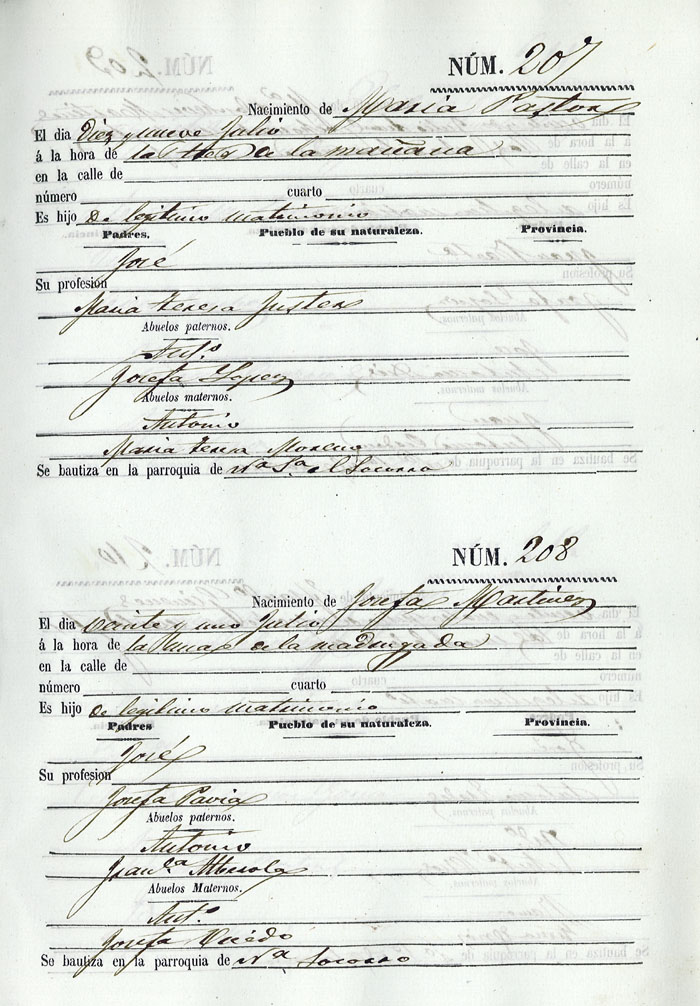 NÚM. 207
Nacimiento de Maria Pastor
El dia Diez y nueve Julio
á la hora de las tres de la mañana
en la calle de
número cuarto
Es hijo de legitimo matrimonio
Padres. Pueblo de su naturaleza. Provincia.
José
Su profesion
Maria Teresa Juster
Abuelos paternos.
Ant.º
Josefa Lopez
Abuelos maternos.
Antonio
Maria Teresa Moreno
Se bautiza en la parroquia de Nª Sª el Socorro
NÚM. 208
Nacimiento de Josefa Martinez
El dia veinte y uno Julio
á la hora de la una de la madrugada
en la calle de
número cuarto
Es hijo de legitimo matrimonio
Padres Pueblo de su naturaleza. Provincia.
José
Su profesion
Josefa Pavia
Abuelos paternos.
Antonio
Fran.ca Alberola
Abuelos Maternos.
Ant.º
Josefa
Se bautiza en la parroquia de Nª Socorro